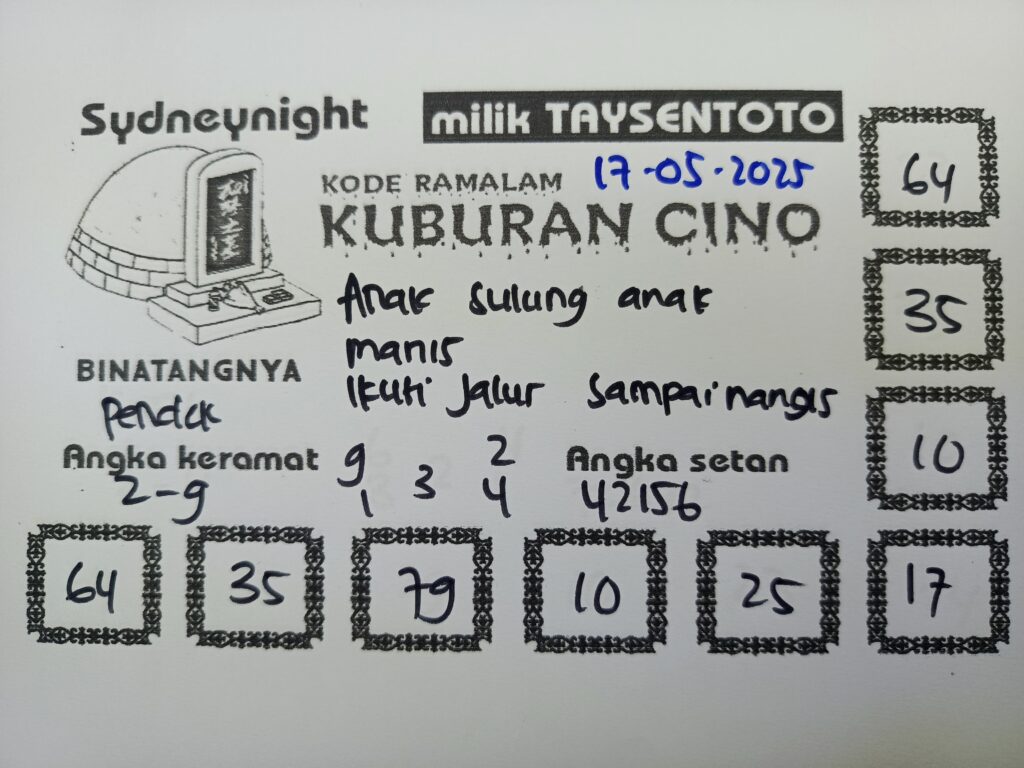 Sydneynight
milik TAYSENTOTO
KODE RAMALAM 17-05-2025
KUBURAN CINO
Anak sulung anak
manis
Ikuti Jalur sampai nangis
BINATANGNYA
Angka keramat
2-9
9 2
3
1 4
Angka setan
42156
64
35
10
64 35 79 10 25 17